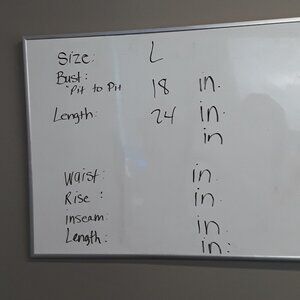 Size: L
Bust:
"Pit to Pit 18 in.
Length: 24 in.
in
Waist: in.
Rise: in.
Inseam: in.
Length: in.